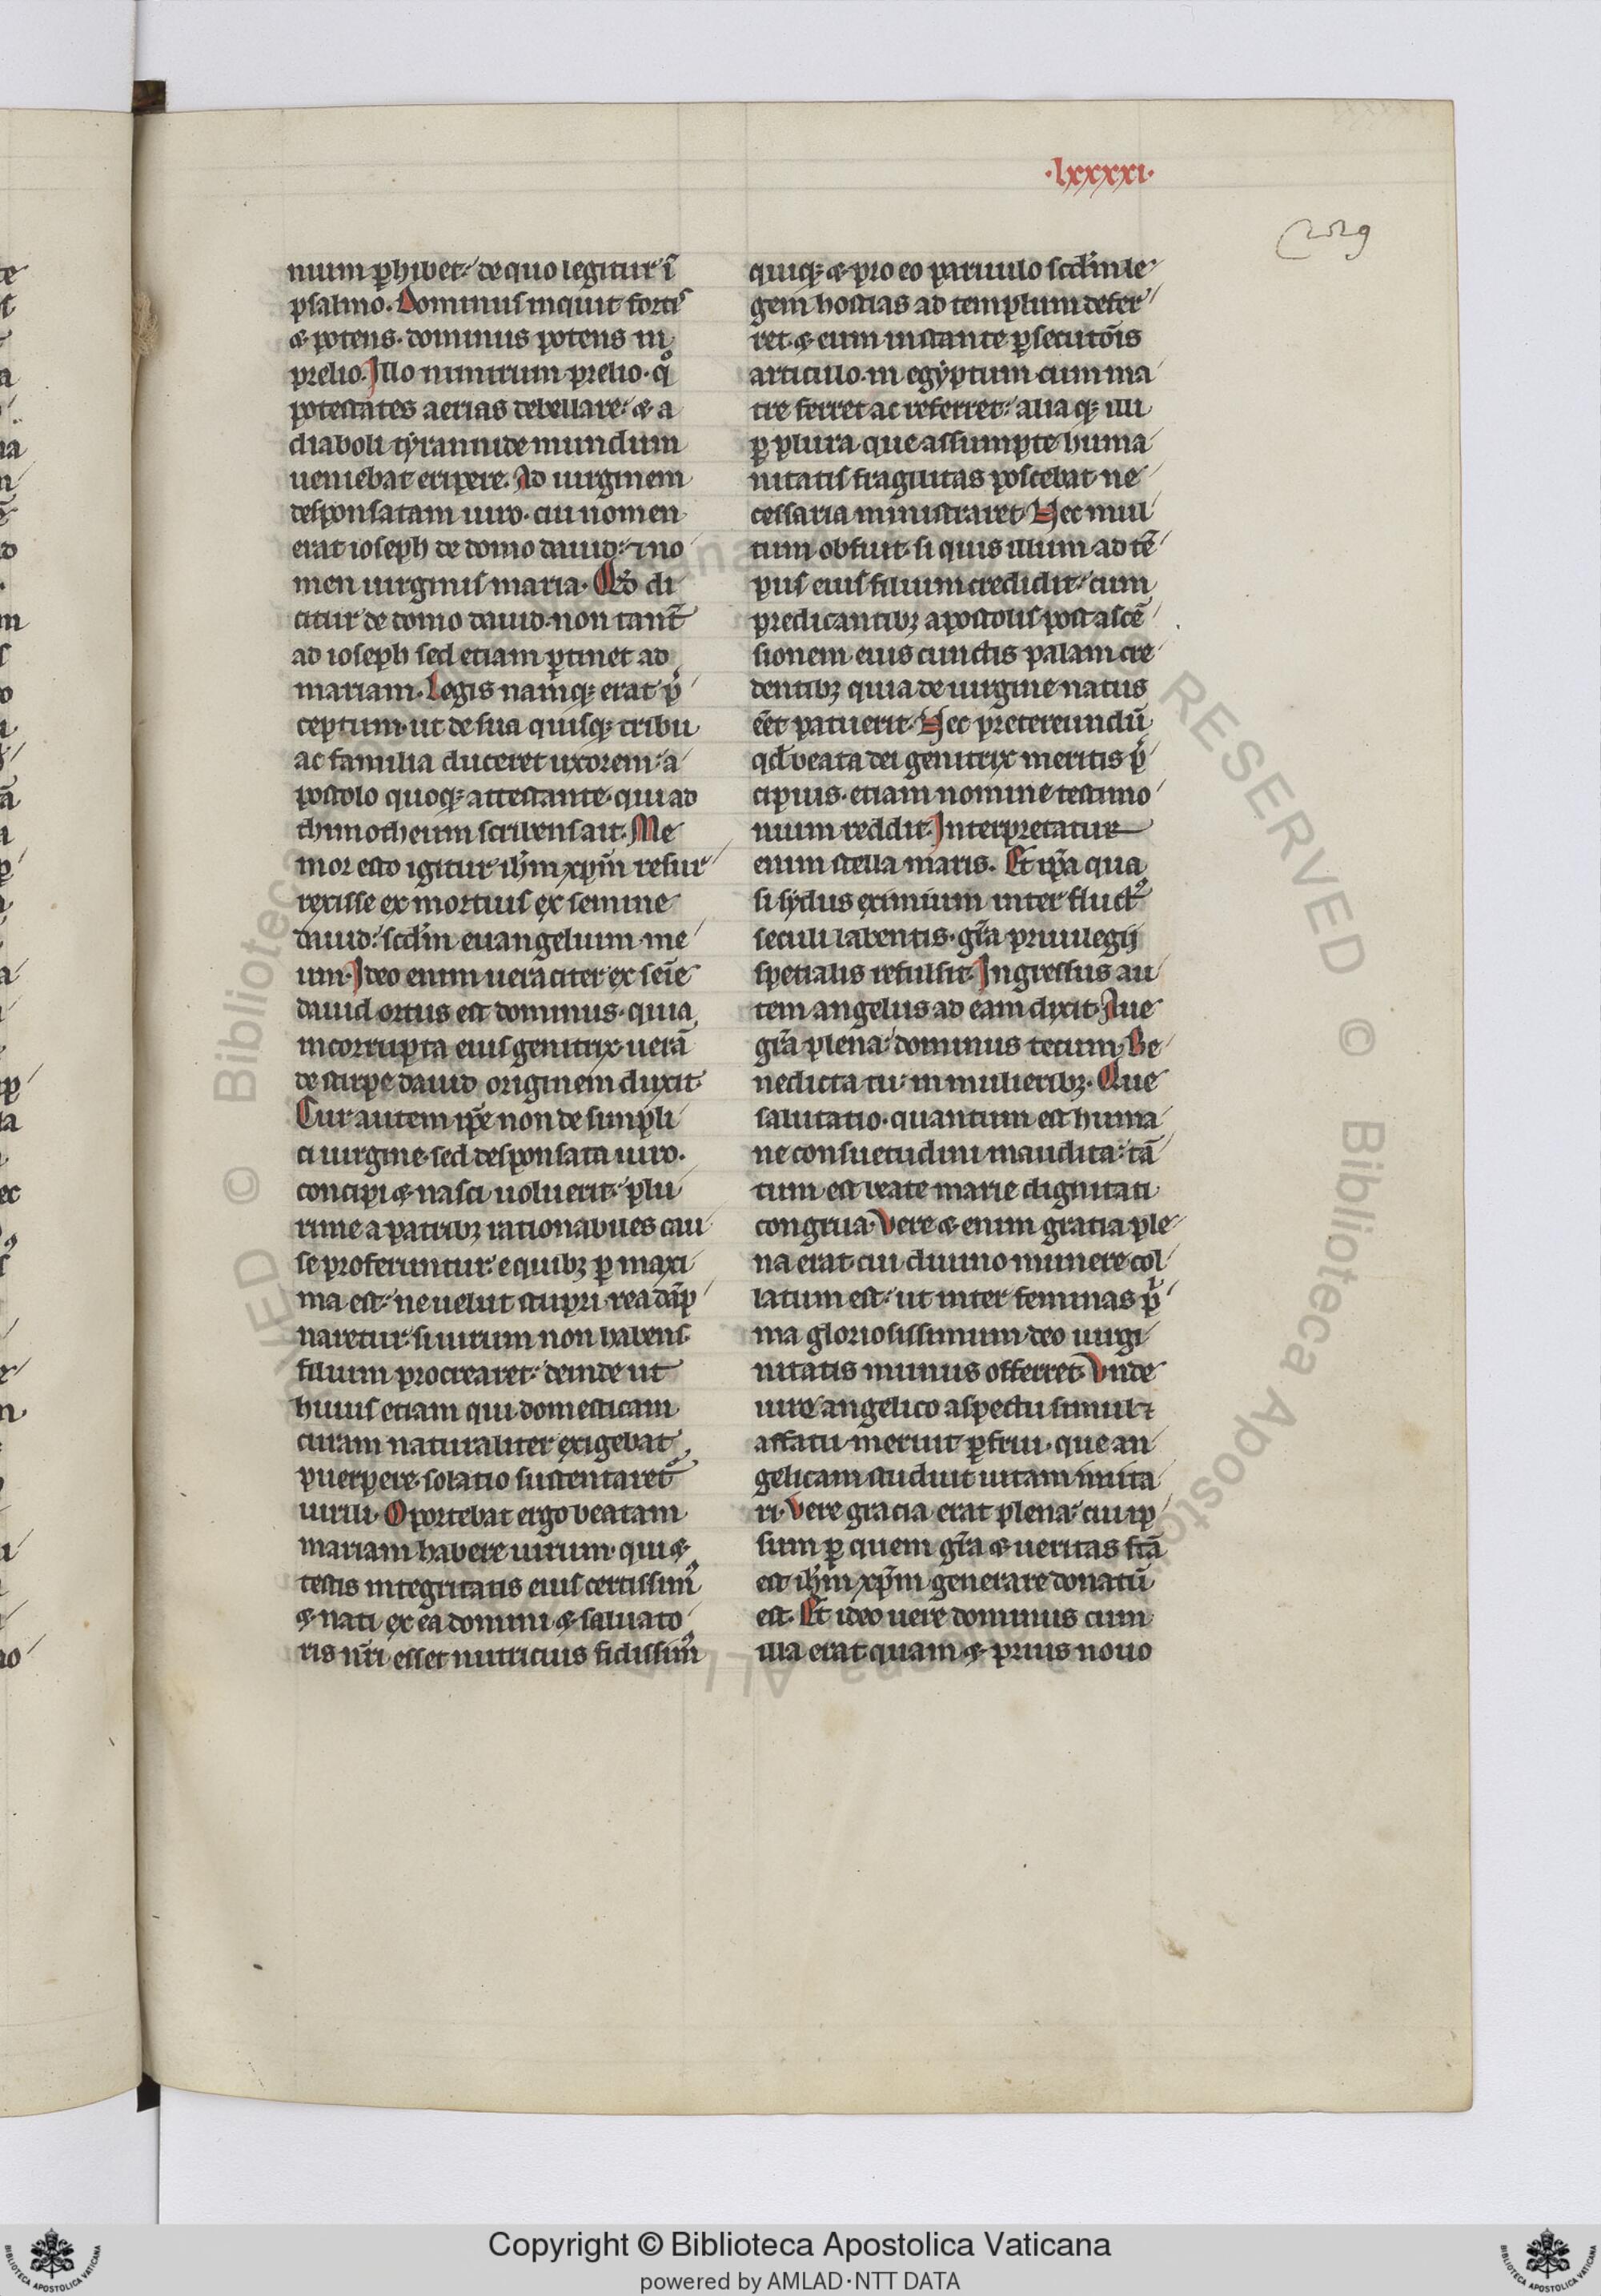 ·lxxxxi·
nium ꝑhibet: de quo legitur ĩ
psalmo. Dominus inquit fortis
& potens. dominus potens in
prelio. Illo nimirum prelio. qͦ
potestates aerias debellare: & a
diaboli tẏrannide mundum
ueniebat eripere. Ad uirginem
desponsatam uiro. cui nomen
erat ioseph de domo dauid: ⁊ no
men uirginis maria. Qð di
citur de domo dauid. non tant̃
ad ioseph sed etiam ꝑtinet ad
mariam. Legis namq; erat p̄
ceptum. ut de sua quisq; tribu
ac familia duceret uxorem: a
postolo quoq; attestante. qui ad
thimotheum scribens ait. Me
mor esto igitur ihm̄ xpm̄ resur
rexisse ex mortuis ex semine
dauid: scdm̄ euangelium me
um. Ideo enim ueraciter ex seīe
dauid ortus est dominus. quia
incorrupta eius genitrix uerā
de stirpe dauid originem duxit.
Cur autem ip̄e non de simpli
ci uirgine. sed desponsata uiro.
concipi & nasci uoluerit: plu
rime a patribꝫ rationabiles cau
se proferuntur: e quibꝫ ꝑ maxi
ma est: ne uelut stupri rea dāp
naretur. si uirum non habens
filium procrearet: deinde ut
huius etiam qui domesticam
curam naturaliter exigebat
puerpere. solatio sustentaret᷑
uirili. Oportebat ergo beatam
mariam habere uirum. qui &
testis integritatis eius certissimꝰ
& nati ex ea domini & saluato
ris nr̄i esset nutricius fidissimꝰ
quiq; & pro eo paruulo scdm̄ le
gem hostias ad templum defer
ret. & eum instante ꝑsecutōis
articulo. in egẏptum cum ma
tre ferret ac referret: alia q; illi
ꝑ plura que assumpte huma
nitatis fragilitas poscebat ne
cessaria ministraret. Nec mul
tum obfuit. si quis illum ad tē
pus eius filium credidit: cum
predicantibꝫ apostolis post ascē
sionem eius cunctis palam cre
dentibꝫ quia de uirgine natus
eēt patuerit. Nec pretereundū
qd̄ beata dei genitrix meritis p̄
cipuis. etiam nomine testimo
nium reddit. Interpretatur
enim stella maris. Et ip̄a qua
si sẏdus eximium inter fluctꝰ
seculi labentis. gr̄a priuilegij
spetialis refulsit. Ingressus au
tem angelus ad eam dixit. Aue
gr̄a plena: dominus tecum. Be
nedicta tu in mulieribꝫ. Que
salutatio. quantum est huma
ne consuetudini inaudita: tā
tum est beate marie dignitati
congrua. Vere & enim gratia ple
na erat. cui diuino munere col
latum est: ut inter feminas pⁱ
ma gloriosissimum deo uirgi
nitatis munus offerret. Vnde
iure angelico aspectu simul ⁊
affatu meruit ꝑfrui. que an
gelicam studuit uitam imita
ri. Vere gracia erat plena: cui ip
sum ꝑ quem gr̄a & ueritas fc̄a
est ihm̄ xp̄m generare donatū
est. Et ideo uere dominus cum
illa erat quam & prius nouo
Copyright © Biblioteca Apostolica Vaticana
powered by AMLAD·NTT DATA